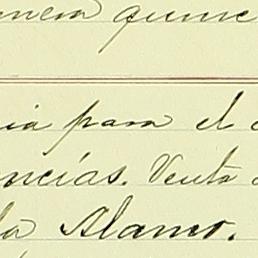 nera quince
ia para el c
ncías. Venta
la Alamo.